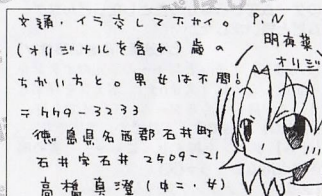 文通・イラ交して下カイ。 P.N
(オリジナルを含め)歳の 明海菜
ちかい方と。男女は不問! オリジ
〒779-3233
徳島県名西郡石井町
石井字石井2509-21
高橋真澄(中二・女)